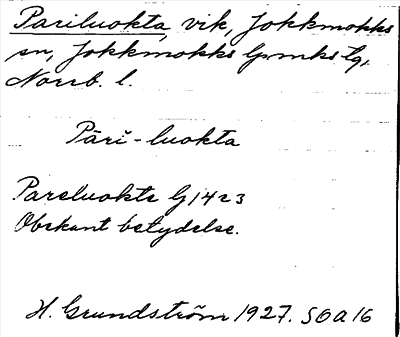 Pariluokta, vik, Jokkmokks
sn, Jokkmokks lpmks tg,
Norrb. l.
Pāri-luokta
Pareluokte G 1423
Obekant betydelse.
H. Grundström 1927. SOA 16